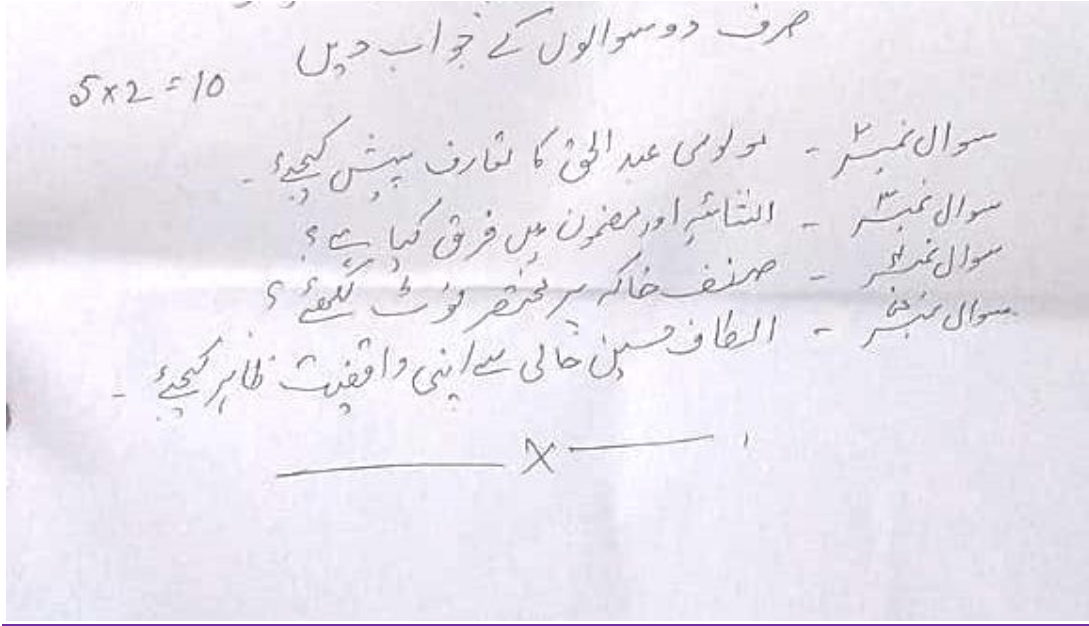 صرف دو سوالوں کے جواب دیں
5×2=10
سوال نمبر ۲ - مولوی عبدالحق کا تعارف پیش کیجئے۔
سوال نمبر ۳ - انشائیہ اور مضمون میں فرق کیا ہے؟
سوال نمبر ۴ - صنف خاکہ پر مختصر نوٹ لکھئے؟
سوال نمبر ۵ - الطاف حسین حالی سے اپنی واقفیت ظاہر کیجئے -
—— × ——